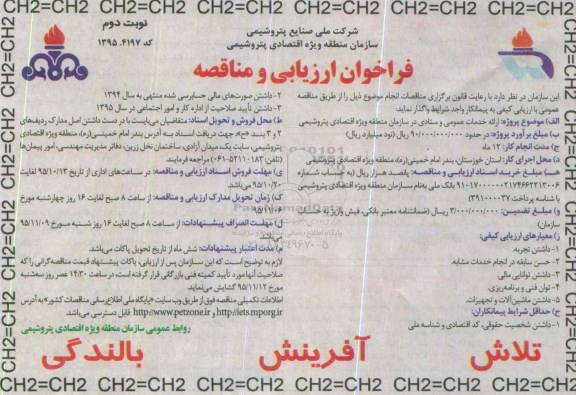 CH2=CH2 CH2=CH2 CH2=CH2 CH2=CH2 CH2=CH2 CH2=CH2
شرکت ملی صنایع پتروشیمی
سازمان منطقه ویژه اقتصادی پتروشیمی
نوبت دوم
کد ۴۱۹۷. ۱۳۹۵
فراخوان ارزیابی و مناقصه
این سازمان در نظر دارد با رعایت قانون برگزاری مناقصات انجام موضوع ذیل را از طریق مناقصه
عمومی با ارزیابی کیفی به پیمانکار واجد شرایط واگذار نماید.
الف) موضوع پروژه: ارائه خدمات عمومی و ستادی در سازمان منطقه ویژه اقتصادی پتروشیمی
ب) مبلغ برآورد پروژه: در حدود ۹۰/۰۰۰/۰۰۰/۰۰۰ ریال (نود میلیارد ریال)
ج) مدت انجام کار: ۱۲ ماه
د) محل اجرای کار: استان خوزستان، بندر امام خمینی(ره)، منطقه ویژه اقتصادی پتروشیمی
هـ) مبلغ خرید اسناد ارزیابی و مناقصه: پانصد هزار ریال (به حساب شماره
۹۱۰۱۷۰۰۰۰۰۲۱۷۴۶۶۲۲۱۳۰۰۶ بانک ملی به‌نام سازمان منطقه ویژه اقتصادی پتروشیمی
با شناسه پرداخت ۳۹۱۰۰۰۰۳۷)
و) مبلغ تضمین: ۳/۰۰۰/۰۰۰/۰۰۰ ریال (ضمانتنامه معتبر بانکی، فیش واریز به حساب
سازمان)
ز) معیارهای ارزیابی کیفی:
۱- داشتن تجربه.
۲- حسن سابقه در انجام خدمات مشابه.
۳- داشتن توانایی مالی
۴- توان فنی و برنامه‌ریزی.
۵- داشتن ماشین‌آلات و تجهیزات.
ح) حداقل شرایط پیمانکاران:
۱- داشتن شخصیت حقوقی، کد اقتصادی و شناسه ملی
۲- داشتن صورت‌های مالی حسابرسی شده منتهی به سال ۱۳۹۴
۳- داشتن تأیید صلاحیت از اداره کار و امور اجتماعی در سال ۱۳۹۵
ط) محل فروش و تحویل اسناد: متقاضیان می‌بایست با در دست داشتن اصل مدارک ردیف‌های
۲ و ۳ بند «ح»، جهت دریافت اسناد به آدرس بندر امام خمینی(ره)، منطقه ویژه اقتصادی
پتروشیمی، سایت یک، میدان آزادی، ساختمان نخل زرین، دفاتر مدیریت مهندسی، امور پیمان‌ها
(تلفن: ۵۲۱۱۰۱۸۳-۰۶۱) مراجعه فرمایند.
ی) مهلت فروش اسناد ارزیابی و مناقصه: در ساعت‌های اداری از تاریخ ۹۵/۱۰/۱۳ لغایت
۹۵/۱۰/۲۰ می‌باشد.
ک) زمان تحویل مدارک ارزیابی و مناقصه: از ساعت ۸ صبح لغایت ۱۶ روز چهارشنبه مورخ
۹۵/۱۱/۰۶
ل) مهلت انصراف پیشنهادات: از ساعت ۸ صبح لغایت ۱۶ روز شنبه مورخ ۹۵/۱۱/۰۹
می‌باشد.
م) مدت اعتبار پیشنهادات: شش ماه از تاریخ تحویل پاکات می‌باشد.
لازم به توضیح است که این سازمان پس از ارزیابی، پاکات پیشنهاد قیمت مناقصه‌گرانی را که
صلاحیت آنها مورد تأیید کمیته فنی بازرگانی قرار گرفته است، در ساعت ۱۴:۳۰ عصر روز سه‌شنبه
مورخ ۹۵/۱۱/۱۲ گشایش می‌نماید.
اطلاعات تکمیلی مناقصه فوق از طریق وب سایت «پایگاه ملی اطلاع‌رسانی مناقصات کشور» به آدرس
http://iets.mporg.ir و http://www.petzone.ir قابل دسترسی می‌باشد.
روابط عمومی سازمان منطقه ویژه اقتصادی پتروشیمی
تلاش آفرینش بالندگی
CH2=CH2 CH2=CH2 CH2=CH2 CH2=CH2 CH2=CH2 CH2=CH2